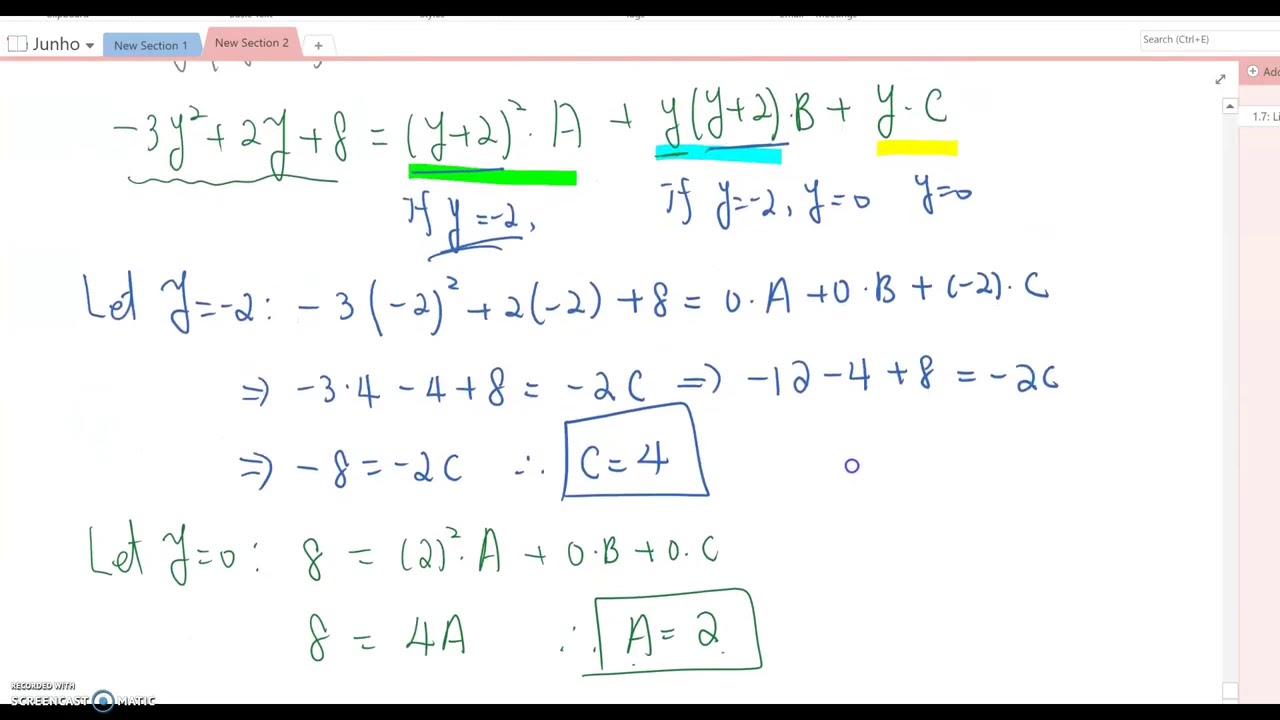 Junho New Section 1 New Section 2 + Search (Ctrl+E)
Add
1.7: Li
-3y² + 2y + 8 = (y+2)²·A + y(y+2)·B + y·C
If y=-2, If y=-2, y=0 y=0
Let y=-2: -3(-2)² + 2(-2) + 8 = 0·A + 0·B + (-2)·C
⇒ -3·4 - 4 + 8 = -2C ⇒ -12 - 4 + 8 = -2C
⇒ -8 = -2C ∴ C = 4
Let y=0: 8 = (2)²·A + 0·B + 0·C
8 = 4A ∴ A = 2
RECORDED WITH
SCREENCAST MATIC